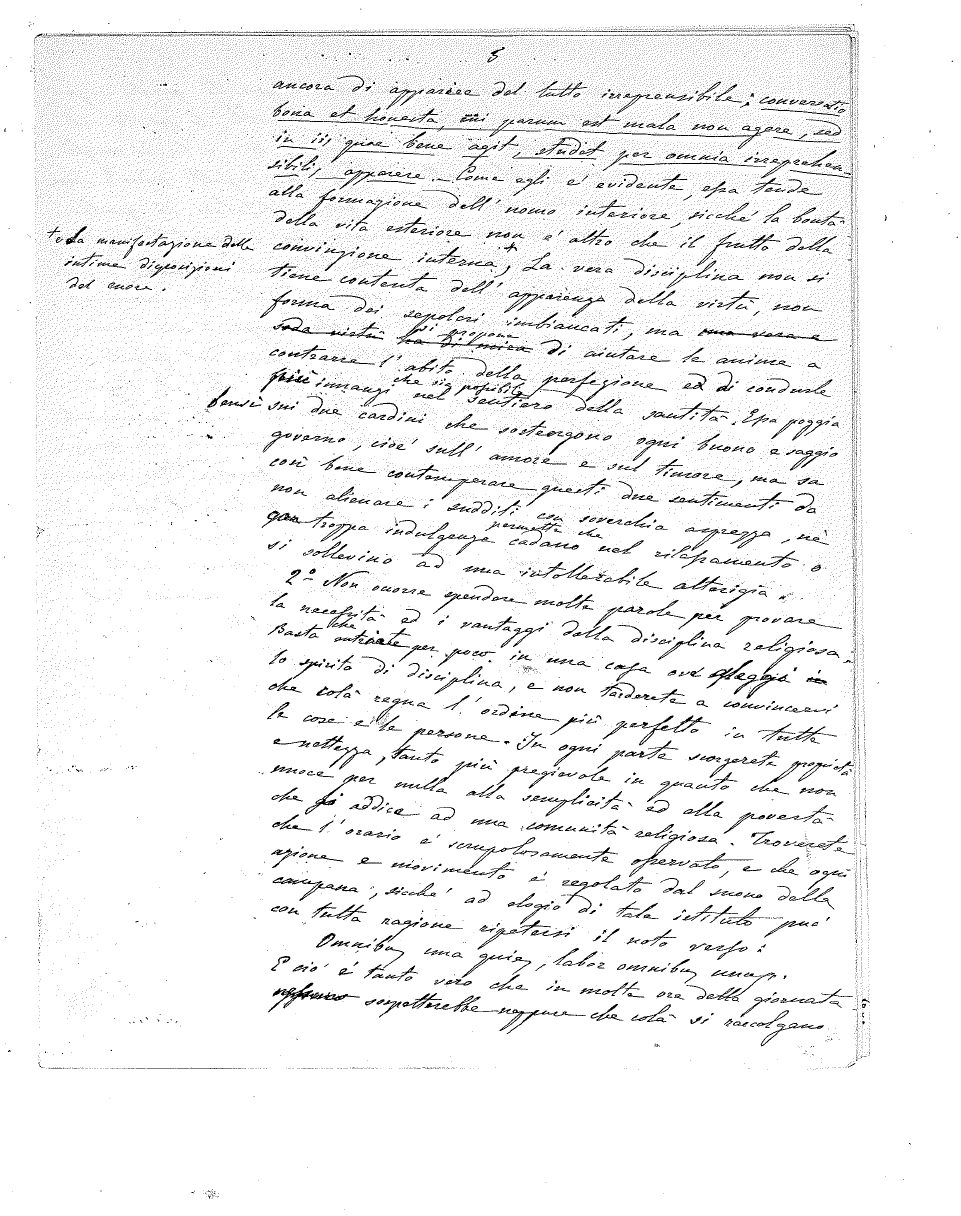 5
ancora di apparire del tutto irreprensibile; conversatio
bona et honesta, cui parum est mala non agere, sed
in iis, quae bene agit, studet per omnia irreprehen-
sibilis apparere. Come egli è evidente, essa tende
alla formazione dell'uomo interiore, sicché la bontà
della vita esteriore non è altro che il frutto della
convinzione interna, + La vera disciplina non si
+ o la manifestazione delle
intime disposizioni
del cuore.
tiene contenta dell'apparenza della virtù, non
forma dei sepolcri imbiancati, ma una vera e
soda virtù ha di mira si propone di aiutare le anime a
contrarre l'abito della perfezione ed di condurle
più innanzi che sia possibile nel sentiero della santità. Essa poggia
bensì sui due cardini che sostengono ogni buono e saggio
governo, cioè sull'amore e sul timore, ma sa
così bene contemperare questi due sentimenti da
non alienare i sudditi con soverchia asprezza, nè
con troppa indulgenza permette che cadano nel rilassamento o
si sollevino ad una intollerabile alterigia.
2° Non occorre spendere molte parole per provare
la necessità ed i vantaggi della disciplina religiosa.
Basta che entriate per poco in una casa ove in
lo spirito di disciplina, e non tarderete a convincervi
che colà regna l'ordine più perfetto in tutte
le cose e le persone. In ogni parte scorgerete proprietà
e nettezza, tanto più pregievole in quanto che non
nuoce per nulla alla semplicità ed alla povertà
che si addice ad una comunità religiosa. Troverete
che l'orario è scrupolosamente osservato, e che ogni
azione e movimento è regolato dal suono della
campana, sicché ad elogio di tale istituto può
con tutta ragione ripetersi il noto verso:
Omnibus una quies, labor omnibus unus.
E ciò è tanto vero che in molte ore della giornata
nessuno sospetterebbe neppure che colà si raccolgano